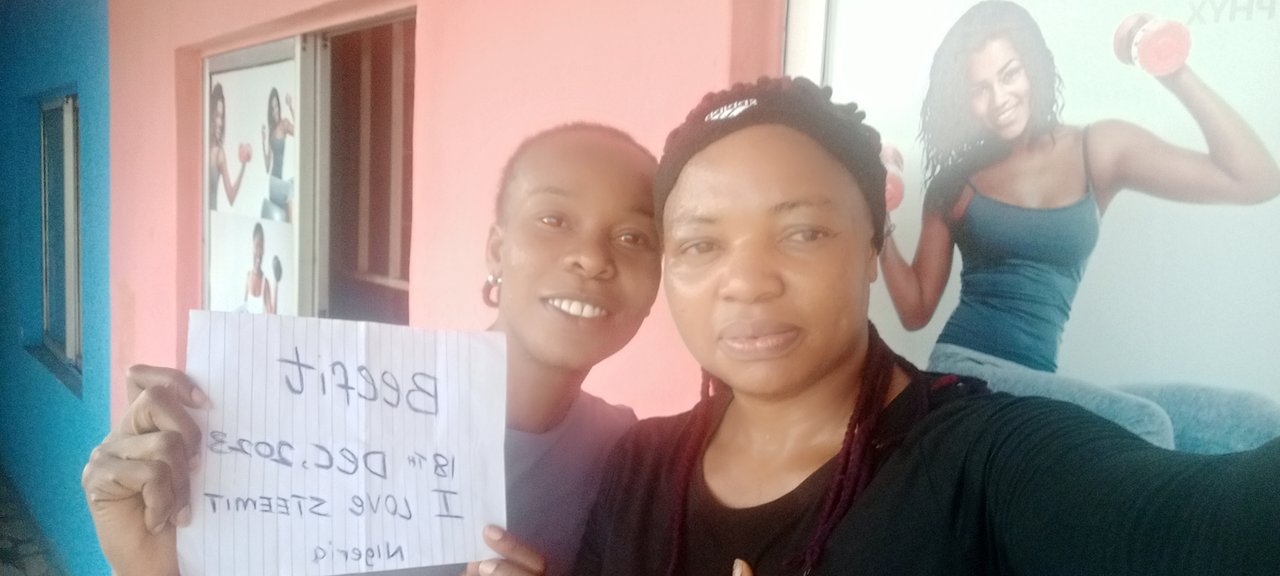 Beefit
18TH DEC, 2023
I LOVE STEEMIT
Nigeria
PHYX
adidas